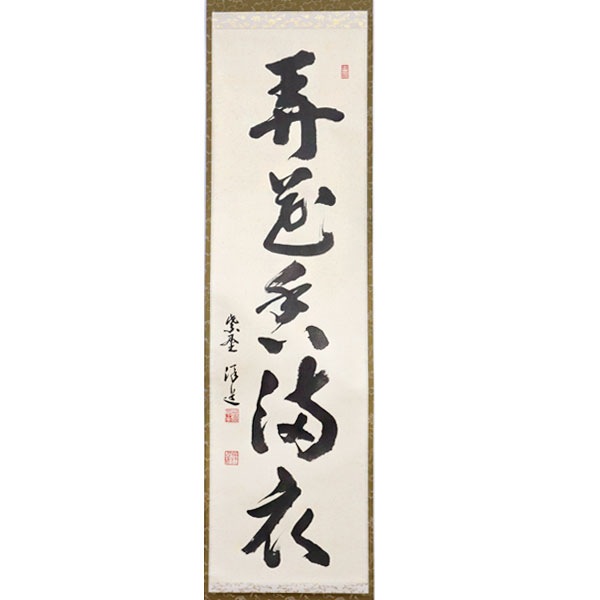 弄花香満衣
紫野